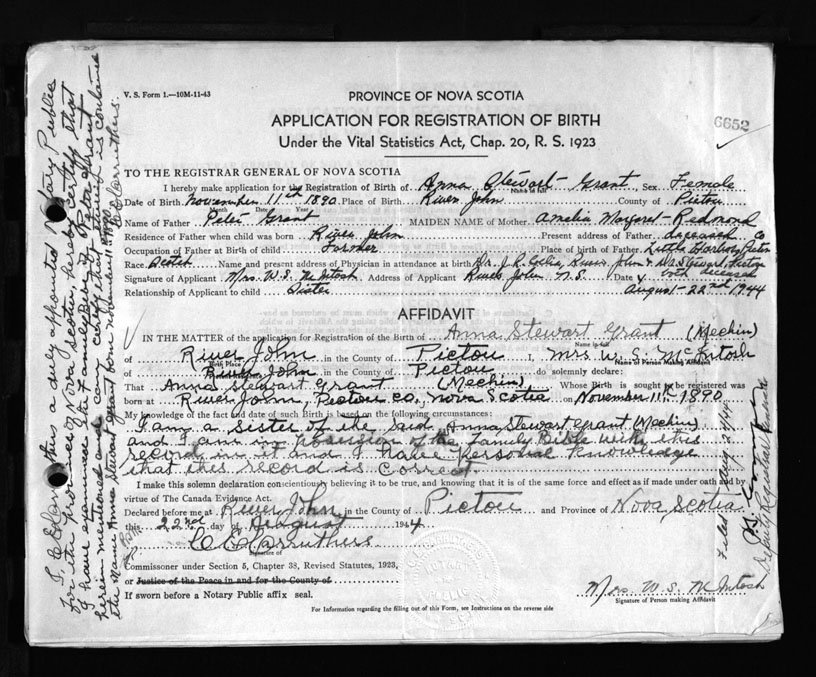 V. S. Form 1.—10M-11-43
PROVINCE OF NOVA SCOTIA
APPLICATION FOR REGISTRATION OF BIRTH
Under the Vital Statistics Act, Chap. 20, R. S. 1923
6652
TO THE REGISTRAR GENERAL OF NOVA SCOTIA
I hereby make application for the Registration of Birth of Anna Stewart Grant, Sex Female
Name in full
Date of Birth November 11th 1890. Place of Birth River John County of Pictou
Month Date Year
Name of Father Peter Grant MAIDEN NAME of Mother Amelia Margaret Redmond
Residence of Father when child was born River John Present address of Father deceased
Occupation of Father at Birth of child Farmer Place of birth of Father Little Harbour, Pictou Co
Race Name and present address of Physician in attendance at birth Dr. J. R. River John & Stewart, both deceased
Signature of Applicant Mrs W. S. McIntosh Address of Applicant River John N.S. Date
Relationship of Applicant to child Sister August 22nd 1944
AFFIDAVIT
IN THE MATTER of the application for Registration of Birth of Anna Stewart Grant (Mechin)
Name in full
of River John in the County of Pictou I, Mrs W. S. McIntosh
Birth Place Name of Person Making Affidavit
of River John in the County of Pictou do solemnly declare:
That Anna Stewart Grant (Mechin) Whose Birth is sought to be registered was
born at River John, Pictou Co, Nova Scotia on November 11th 1890
My knowledge of the fact and date of such Birth is based on the following circumstances:
I am a sister of the said Anna Stewart Grant (Mechin)
and I am in possession of the Family Bible with this
record in it and I have personal knowledge
that this record is correct
I make this solemn declaration conscientiously believing it to be true, and knowing that it is of the same force and effect as if made under oath and by
virtue of The Canada Evidence Act.
Declared before me at River John in the County of Pictou and Province of Nova Scotia
this 22nd day of August 1944
C E Carruthers
Signature of
Commissioner under Section 5, Chapter 38, Revised Statutes, 1923,
or Justice of the Peace in and for the County of
If sworn before a Notary Public affix seal.
Mrs. W. S. McIntosh
Signature of Person making Affidavit
For Information regarding the filling out of this Form, see Instructions on the reverse side
I, C E Carruthers a duly appointed Notary Public
for the province of Nova Scotia, hereby certify that
I have examined the Family Bible of Peter Grant
herein mentioned and can certify that therein is contained
the name Anna Stewart Grant born November 11th 1890
C E Carruthers
Filed Aug. 24/44
Deputy Registrar General